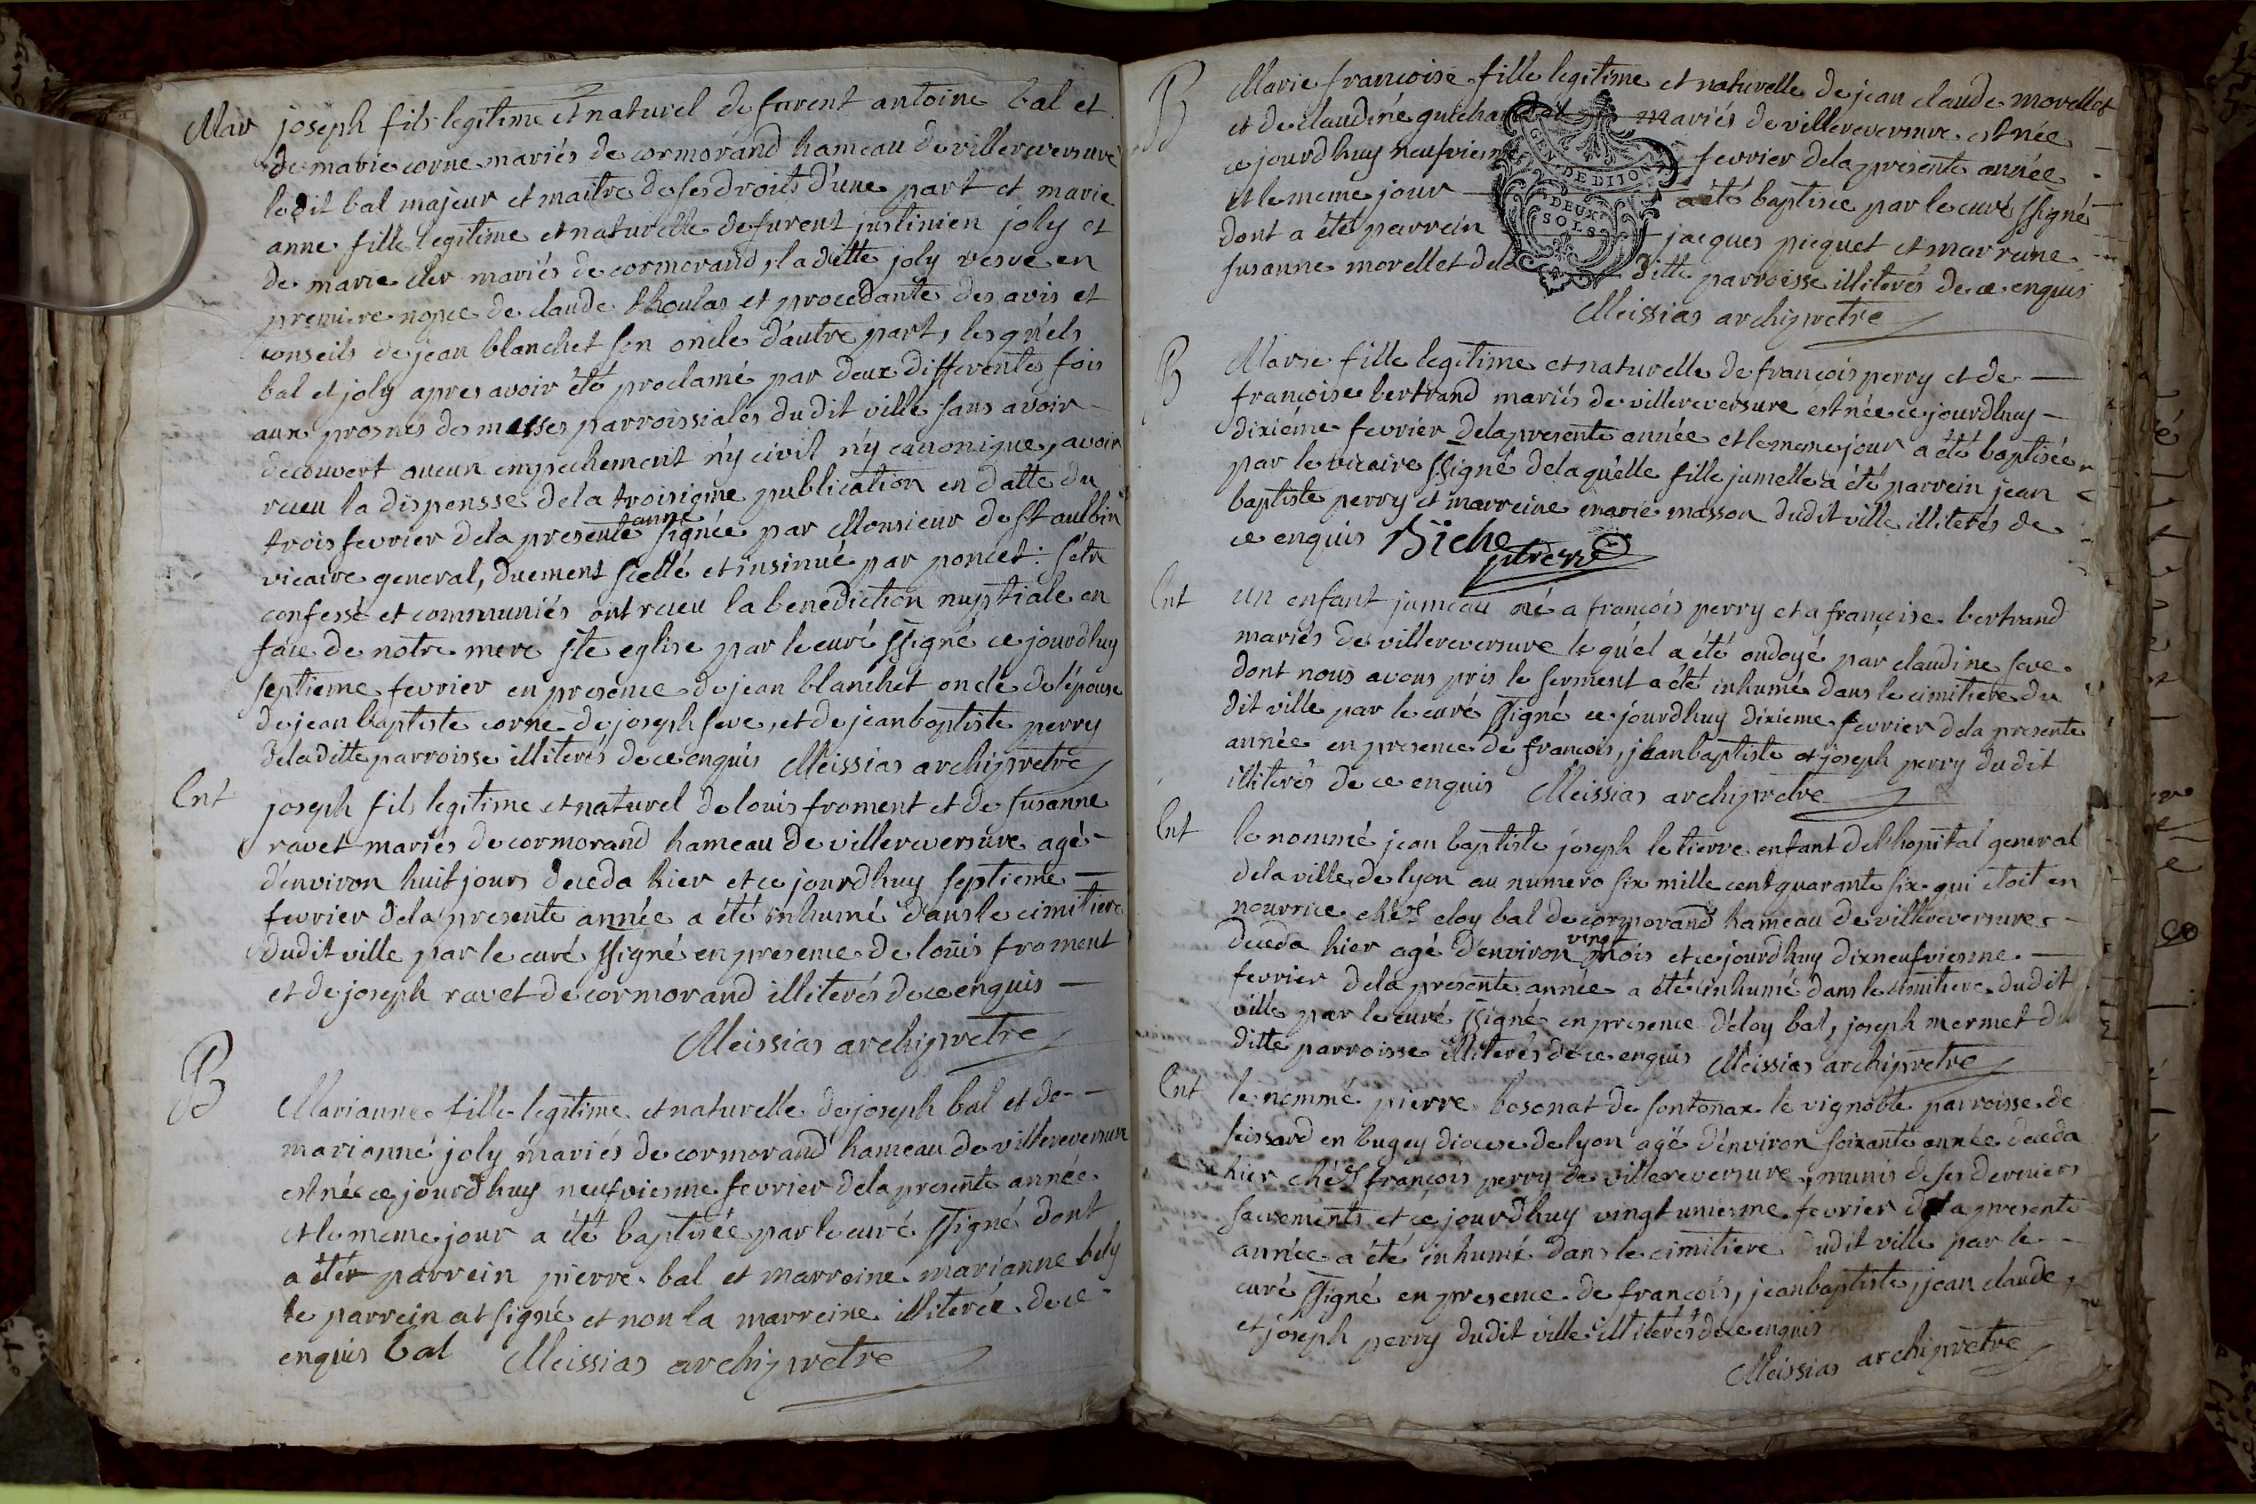 2
Mar joseph fils legitime et naturel de furent antoine bal et
de marie corne mariés de cormorand hameau de villereversure
ledit bal majeur et maitre de ses droits d'une part et marie
anne fille legitime et naturelle de furent justinien joly et
de marie cler mariés de cormorand, la ditte joly vesve en
premiere nopce de claude thoulas et procedante des avis et
conseils de jean blanchet son oncle d'autre part, lesquels
bal et joly apres avoir été proclamé par deux differentes fois
aux prosnes des messes parroissiales dudit ville sans avoir
decouvert aucun empechement n'y civil n'y canonique, avoir
receu la dispensse de la troisieme publication en datte du
trois fevrier de la presente année signée par Monsieur de St aulbin
vicaire general, duement scellé et insinué par poncet : s'etr
confessé et communiés ont receu la benediction nuptiale en
face de notre mere ste eglise par le curé ssigné ce jourdhuy
septieme fevrier en presence de jean blanchet oncle de l'épouse
de jean baptiste corne de joseph seve, et de jean baptiste perry
de la ditte parroisse illiterés de ce enquis Meissias archipretre
Ent joseph fils legitime et naturel de louis froment et de susanne
ravet mariés de cormorand hameau de villereversure agé
d'environ huit jours deceda hier et ce jourdhuy septieme
fevrier de la presente année a été inhumé dans le cimitiere
dudit ville par le curé ssigné en presence de louis froment
et de joseph ravet de cormorand illiterés de ce enquis
Meissias archipretre
B Marianne fille legitime et naturelle de joseph bal et de
marianne joly mariés de cormorand hameau de villereversure
est née ce jourdhuy neufviesme fevrier de la presente année
et le meme jour a été baptisée par le curé ssigné dont
a été parrein pierre bal et marreine marianne boly
le parrein at signé et non la marreine illiterée de ce
enquis bal Meissias archipretre
B Marie francoise fille legitime et naturelle de jean claude morellet
et de claudine guichardet mariés de villereversure est née
ce jourdhuy neufviesme fevrier de la presente année
et le meme jour a été baptisée par le curé ssigné
dont a été parrein jacques picquet et marreine
susanne morellet de la ditte parroisse illiterés de ce enquis
GEN DE DIJON
DEUX
SOLS
Meissias archipretre
B Marie fille legitime et naturelle de francois perry et de
francoise bertrand mariés de villereversure est née ce jourdhuy
dixiéme fevrier de la presente année et le meme jour a été baptisée
par le vicaire ssigné de laquelle fille jumelle a été parrein jean
baptiste perry et marreine marie masson dudit ville illiterés de
ce enquis Biche
ptre vre
Ent un enfant jumeau né a françois perry et a françoise bertrand
mariés de villereversure lequ'el a été ondoyé par claudine seve
dont nous avons pris le serment a été inhumé dans le cimitiere du
dit ville par le curé ssigné ce jourdhuy dixieme fevrier de la presente
année en presence de francois, jean baptiste et joseph perry dudit
illiterés de ce enquis Meissias archipretre
Ent le nommé jean baptiste joseph letierre enfant de l'hopital general
de la ville de lyon au numero six mille cent quarante six qui etoit en
nourrice chés eloy bal de cormorand hameau de villereversure
deceda hier agé d'environ vingt mois et ce jourdhuy dixneufviesme
fevrier de la presente année a été inhumé dans le cimitiere dudit
ville par le curé ssigné en presence d'eloy bal, joseph mermet de
ditte parroisse illiterés de ce enquis Meissias archipretre
Ent le nommé pierre bosonat de sontonax le vignoble parroisse de
seissard en bugey diocese de lyon agé d'environ soixante année deceda
hier chés françois perry de villereversure, munis de ses derniers
sacrements et ce jourdhuy vingt uniesme fevrier de la presente
année a été inhumé dans le cimitiere dudit ville par le
curé ssigné en presence de francois, jean baptiste, jean claude,
et joseph perry dudit ville illiterés de ce enquis
Meissias archipretre